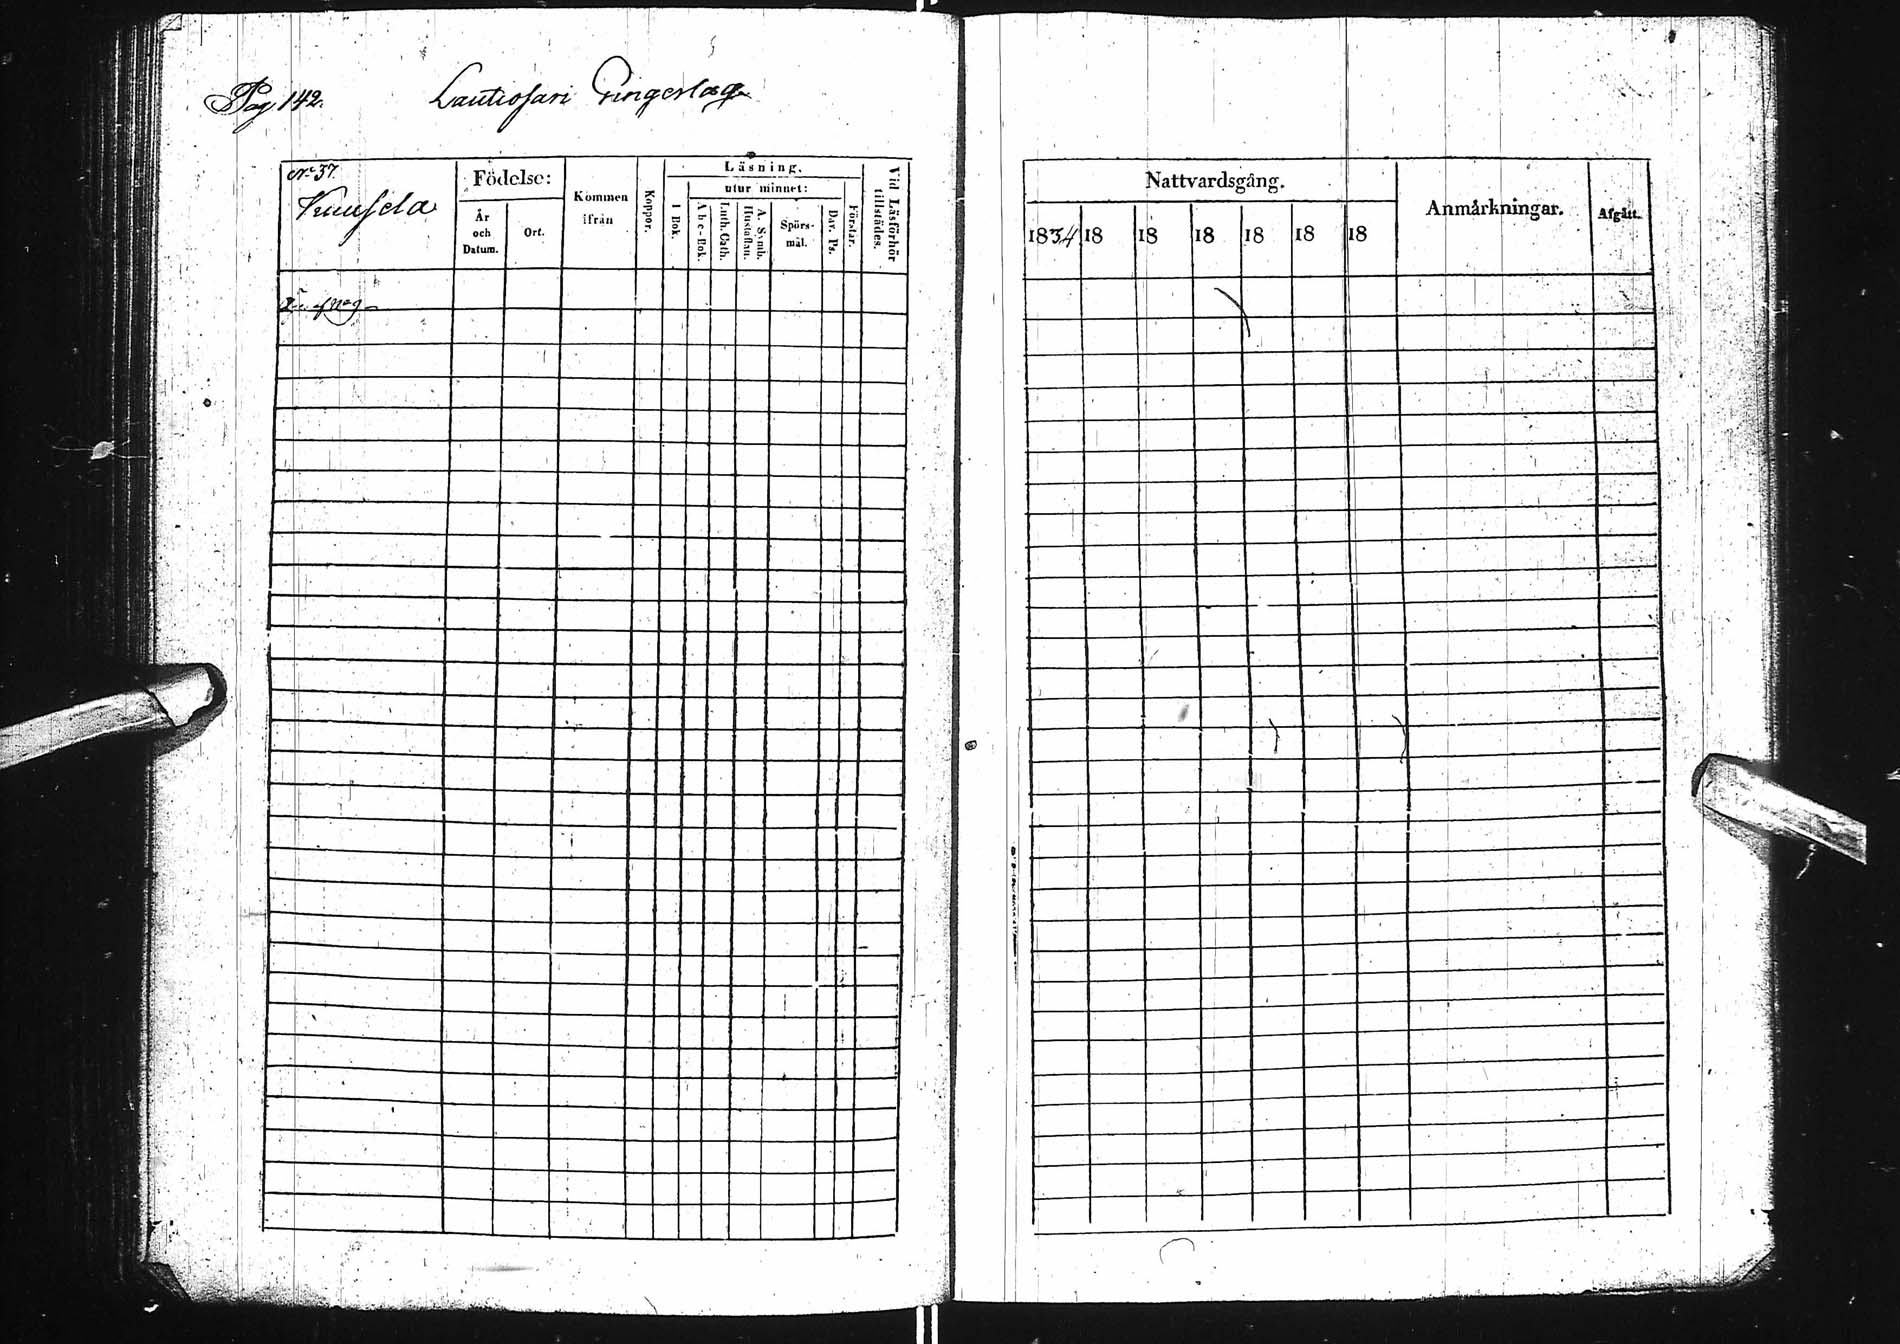 Pag 142. Lautiosari Ringeslag
No 37.
Födelse:
År och Datum.
Ort.
Kommen ifrån
Koppor.
Läsning.
I Bok.
utur minnet:
Abc-Bok.
Luth. Cath.
A. Symb. Hustaflan.
Spörs-mål.
Dav. Ps.
Förstår.
Vid Läsförhör tillstädes.
Nattvardsgång.
1834 18 18 18 18 18 18
Anmärkningar.
Afgått.